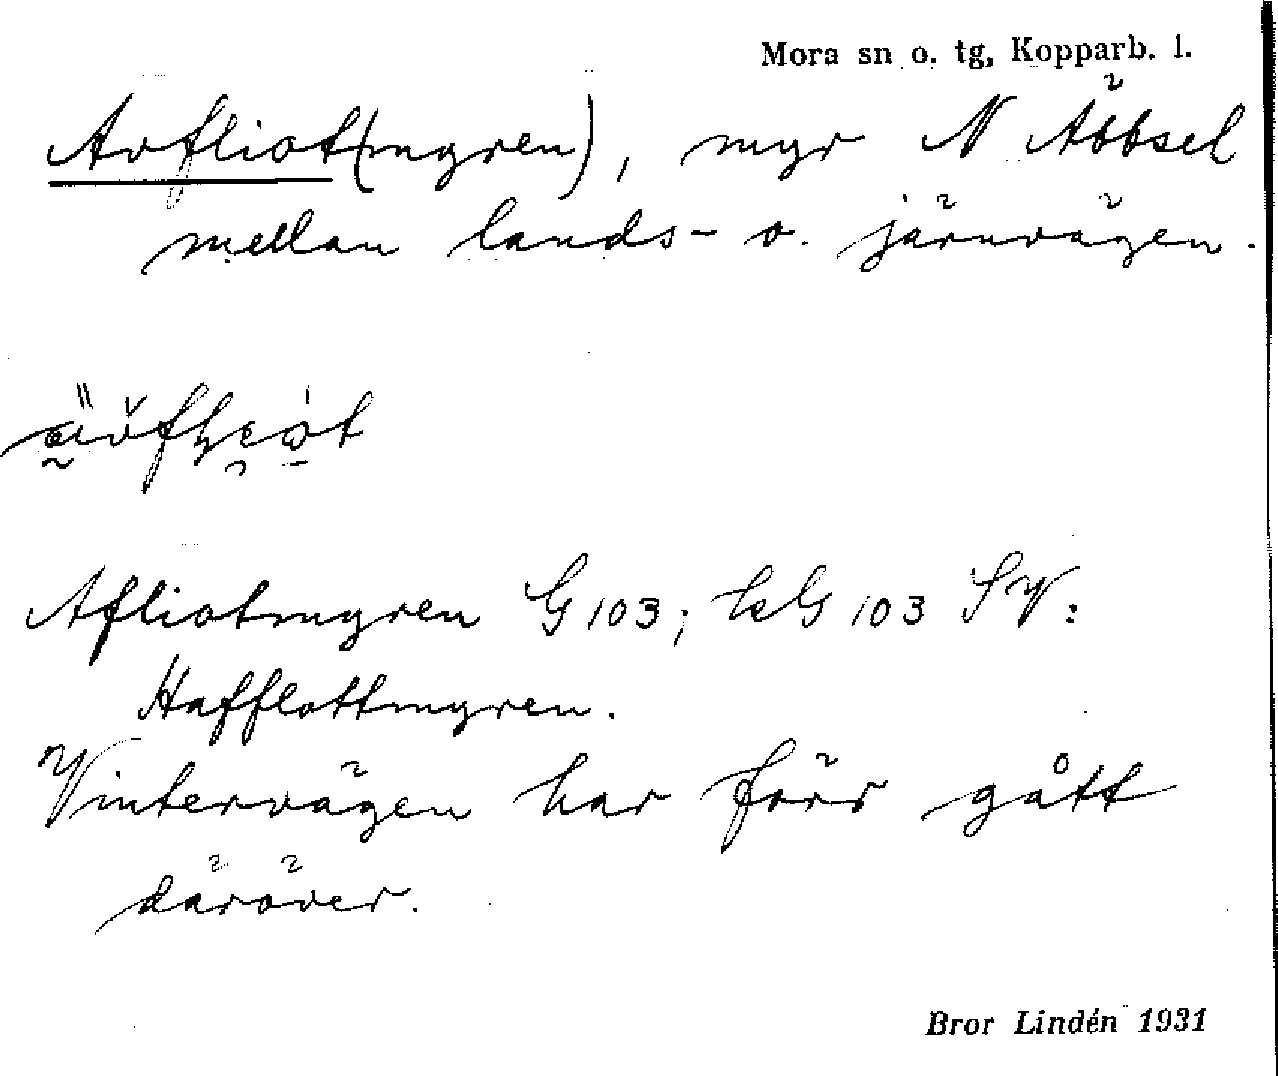 Mora sn o. tg, Kopparb. l.
Avfliot(myren), myr N Äbbsel
mellan lands- o. järnvägen.
Afliotmyren G 103; LsG 103 SV:
Hafflottmyren.
Vintervägen har förr gått
däröver.
Bror Lindén 1931